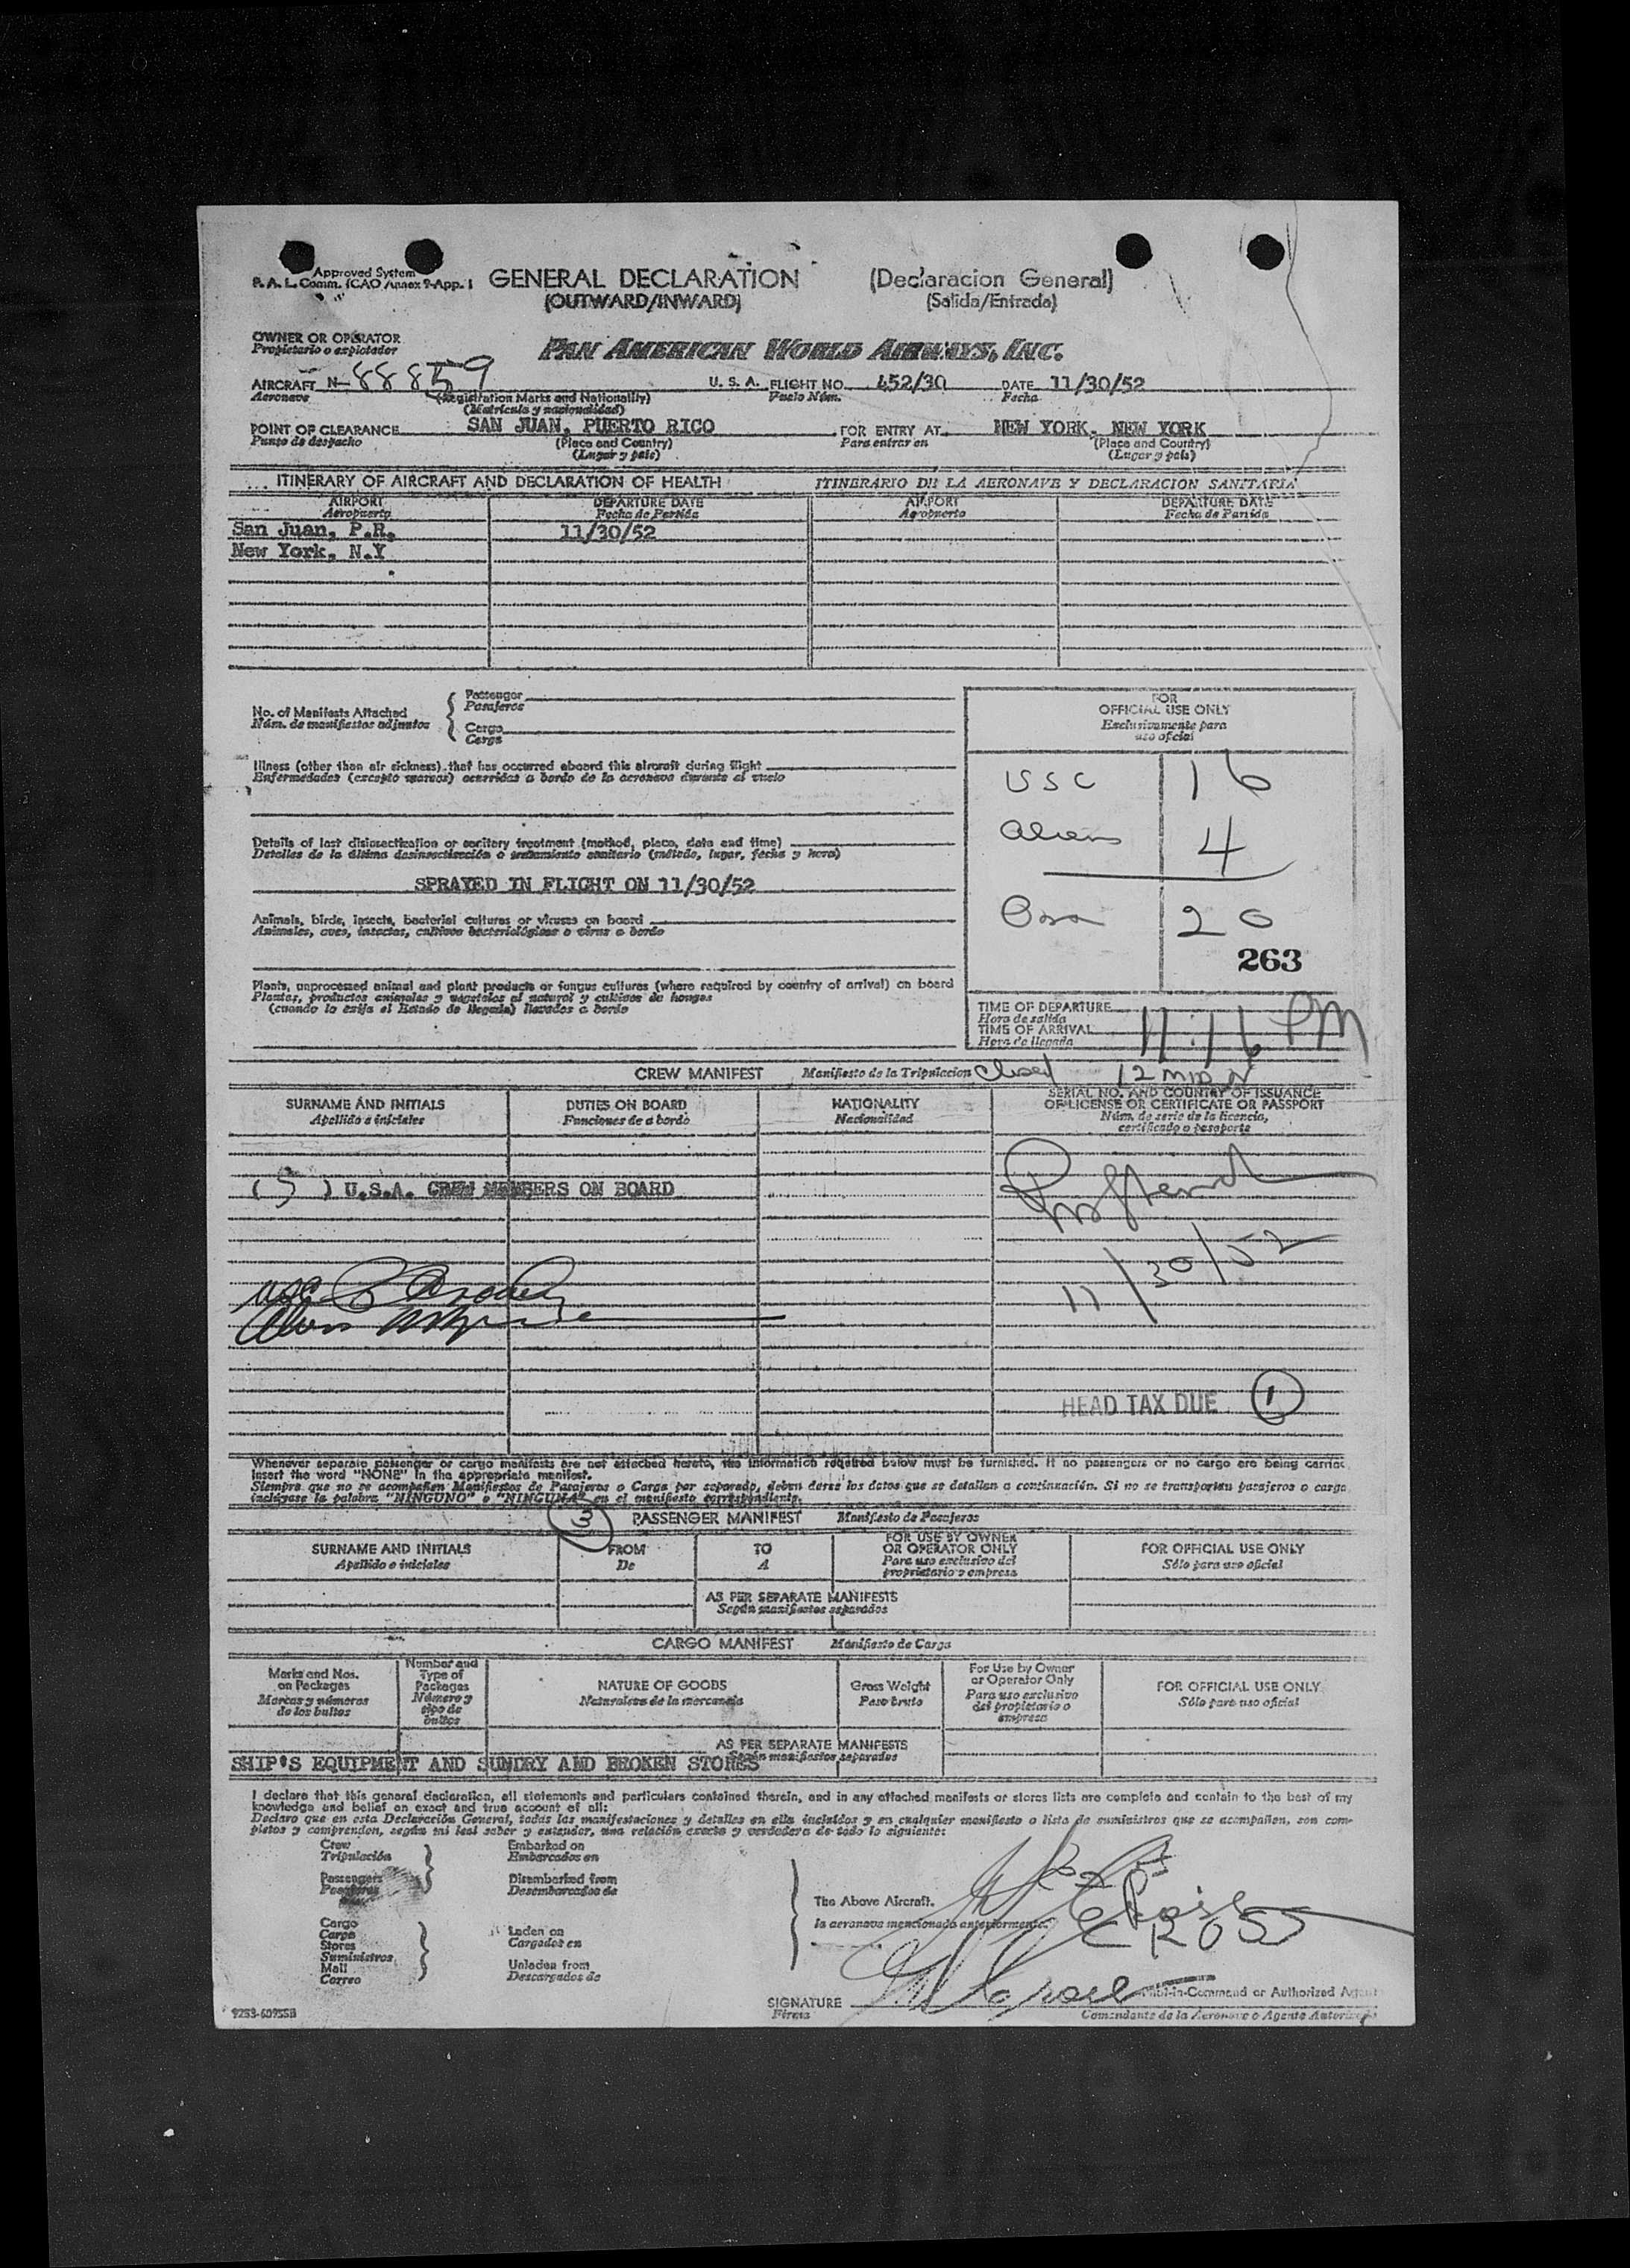 Approved System
P. A. L. Comm. (CAO Annex 9-App. 1
GENERAL DECLARATION (Declaracion General)
(OUTWARD/INWARD) (Salida/Entrada)
OWNER OR OPERATOR
Propietario o explotador
PAN AMERICAN WORLD AIRWAYS, INC.
AIRCRAFT N-88859 U. S. A. FLIGHT NO. 452/30 DATE 11/30/52
Aeronave (Registration Marks and Nationality) Vuelo Núm. Fecha
(Matrícula y nacionalidad)
POINT OF CLEARANCE SAN JUAN, PUERTO RICO FOR ENTRY AT NEW YORK, NEW YORK
Punto de despacho (Place and Country) Para entrar en (Place and Country)
(Lugar y país) (Lugar y país)
ITINERARY OF AIRCRAFT AND DECLARATION OF HEALTH ITINERARIO DE LA AERONAVE Y DECLARACION SANITARIA
AIRPORT DEPARTURE DATE AIRPORT DEPARTURE DATE
Aeropuerto Fecha de Partida Aeropuerto Fecha de Partida
San Juan, P.R. 11/30/52
New York, N.Y
No. of Manifests Attached
Núm. de manifiestos adjuntos
Passenger
Pasajeros
Cargo
Carga
FOR
OFFICIAL USE ONLY
Exclusivamente para
uso oficial
Illness (other than air sickness) that has occurred aboard this aircraft during flight
Enfermedades (excepto mareos) ocurridas a bordo de la aeronave durante el vuelo
USC 16
Aliens 4
Details of last disinsectization or sanitary treatment (method, place, date and time)
Detalles de la última desinsectización o tratamiento sanitario (método, lugar, fecha y hora)
SPRAYED IN FLIGHT ON 11/30/52
20
263
Animals, birds, insects, bacterial cultures or viruses on board
Animales, aves, insectos, cultivos bacteriológicos o virus a bordo
Plants, unprocessed animal and plant products or fungus cultures (where required by country of arrival) on board
Plantas, productos animales y vegetales al natural y cultivos de hongos
(cuando lo exija el Estado de llegada) llevados a bordo
TIME OF DEPARTURE
Hora de salida
TIME OF ARRIVAL 11:16 PM
Hora de llegada
CREW MANIFEST Manifiesto de la Tripulacion Closed 12 MIDN
SURNAME AND INITIALS DUTIES ON BOARD NATIONALITY SERIAL NO. AND COUNTRY OF ISSUANCE
OF LICENSE OR CERTIFICATE OR PASSPORT
Apellido e iniciales Funciones de a bordo Nacionalidad Núm. de serie de la licencia,
certificado o pasaporte
(5) U.S.A. CREW MEMBERS ON BOARD
11/30/52
HEAD TAX DUE 1
Whenever separate passenger or cargo manifests are not attached hereto, the information required below must be furnished. If no passengers or no cargo are being carried
insert the word "NONE" in the appropriate manifest.
Siempre que no se acompañen Manifiestos de Pasajeros o Carga por separado, deben darse los datos que se detallan a continuación. Si no se transportan pasajeros o carga
inclúyase la palabra "NINGUNO" o "NINGUNA" en el manifiesto correspondiente.
3 PASSENGER MANIFEST Manifiesto de Pasajeros
SURNAME AND INITIALS FROM TO FOR USE BY OWNER
OR OPERATOR ONLY FOR OFFICIAL USE ONLY
Apellido e iniciales De A Para uso exclusivo del
propietario o empresa Sólo para uso oficial
AS PER SEPARATE MANIFESTS
Según manifiestos separados
CARGO MANIFEST Manifiesto de Carga
Marks and Nos.
on Packages
Marcas y números
de los bultos
Number and
Type of
Packages
Número y
tipo de
bultos
NATURE OF GOODS
Naturaleza de la mercancía
Gross Weight
Peso bruto
For Use by Owner
or Operator Only
Para uso exclusivo
del propietario o
empresa
FOR OFFICIAL USE ONLY
Sólo para uso oficial
AS PER SEPARATE MANIFESTS
Según manifiestos separados
SHIP'S EQUIPMENT AND SUNDRY AND BROKEN STORES
I declare that this general declaration, all statements and particulars contained therein, and in any attached manifests or stores lists are complete and contain to the best of my
knowledge and belief an exact and true account of all:
Declaro que en esta Declaración General, todas las manifestaciones y detalles en ella incluidos y en cualquier manifiesto o lista de suministros que se acompañen, son com-
pletos y comprenden, según mi leal saber y entender, una relación exacta y verdadera de todo lo siguiente:
Crew
Tripulación
Passengers
Pasajeros
Embarked on
Embarcados en
Disembarked from
Desembarcados de
Cargo
Carga
Stores
Suministros
Mail
Correo
Laden on
Cargados en
Unladen from
Descargados de
The Above Aircraft.
la aeronave mencionada anteriormente.
ROSS
SIGNATURE Pilot-in-Command or Authorized Agent
Firma Comandante de la Aeronave o Agente Autorizado
9253-60955B